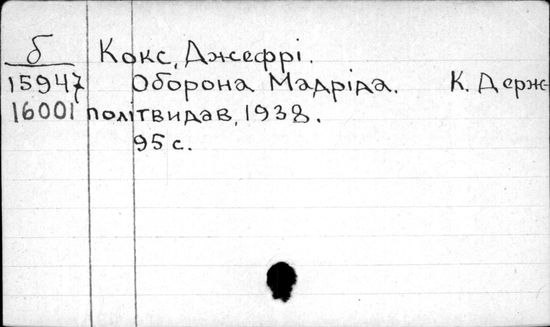 б Кокс, Джеффрі.
15947 Оборона Мадріда. К. Держ-
16001 політвидав, 1938.
95 с.